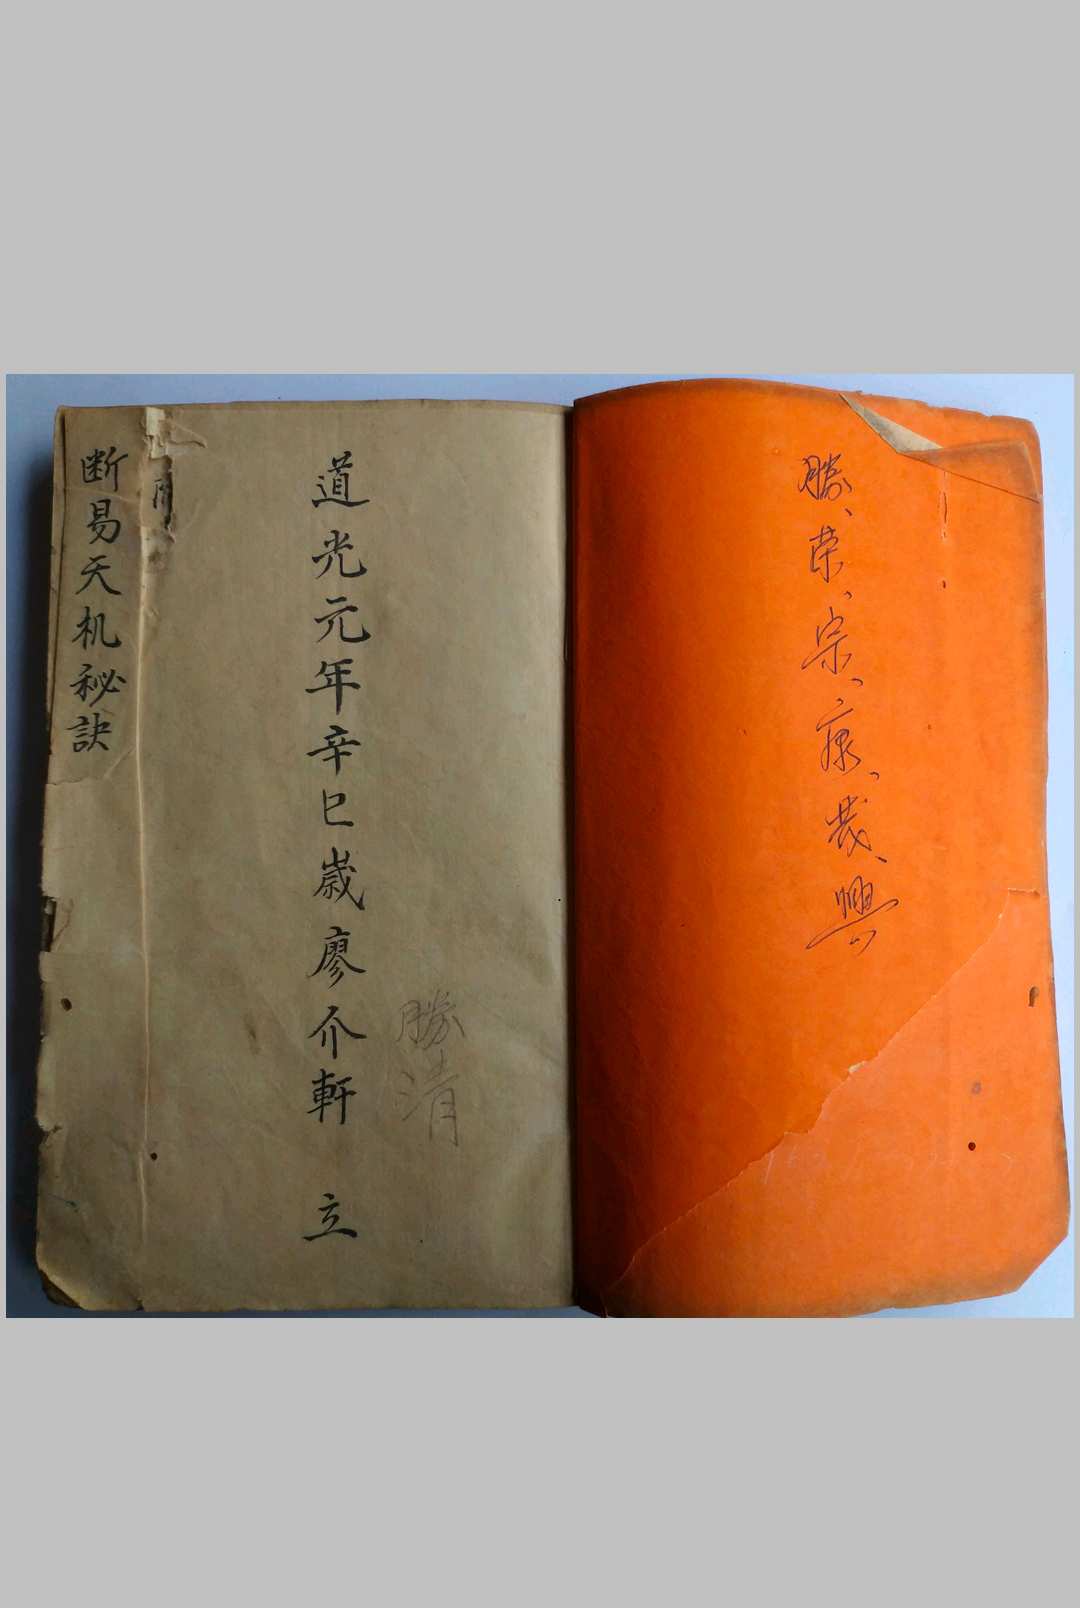 勝、荣、宗、康、哉、興
道光元年辛巳歳廖介軒 立
勝清
断易天机秘訣